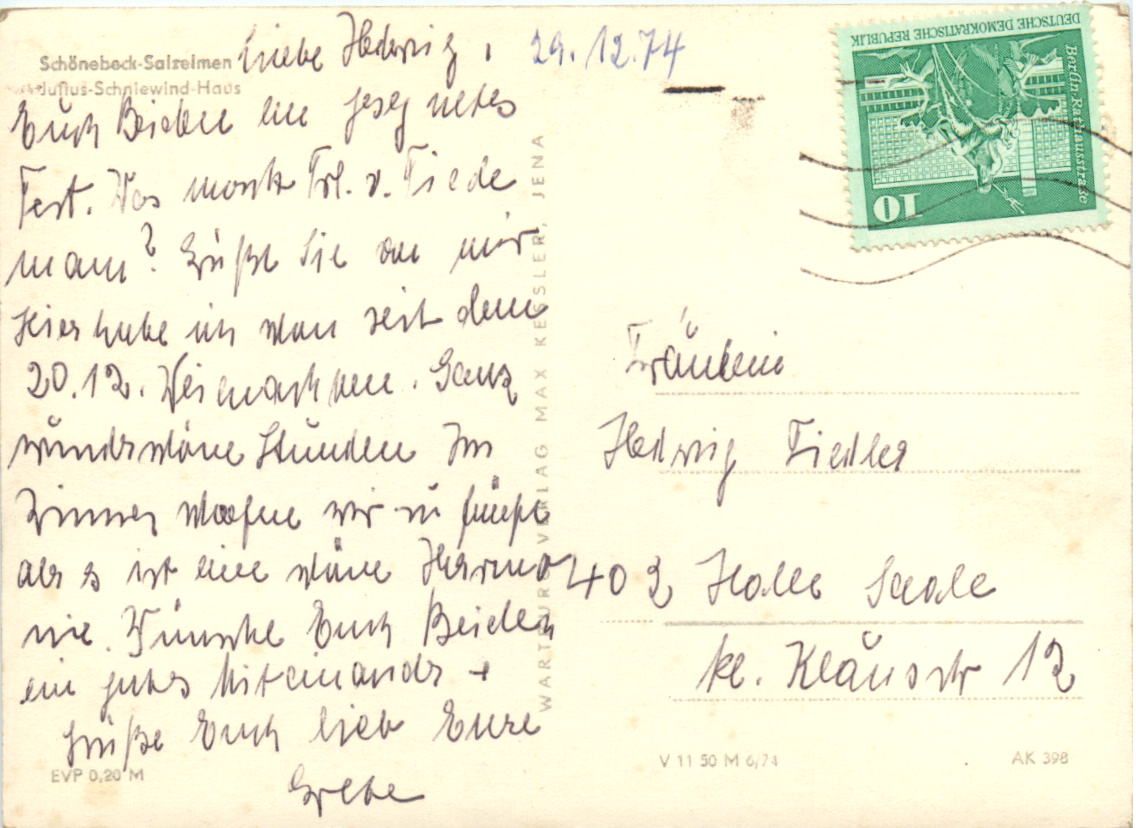 Schönebeck-Salzelmen
Julius-Schniewind-Haus
Liebe Hedwig, 29.12.74
Euch Beiden ein gesegnetes
Fest. Was macht Frl. v. Tiede
mann? Grüßt Sie von mir
Hier habe ich schon seit dem
20.12. Weihnachten. Ganz
wunderschöne Stunden Im
Zimmer schlafen wir zu fünft
aber es ist eine schöne Harmo
nie. Wünsche Euch Beiden
ein gutes Miteinander
Grüße Euch lieb Eure
Grete
EVP 0,20 M
WARTBURG VERLAG MAX KESSLER, JENA
DEUTSCHE DEMOKRATISCHE REPUBLIK
Berlin·Rathausstraße
10
Fräulein
Hedwig Fiedler
402 Halle Saale
kl. Klausstr 12
V 11 50 M 6/74
AK 398